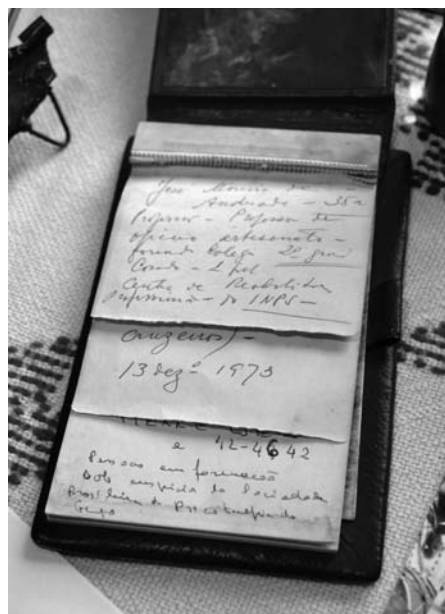 José Moreira de
Andrade – 35a
Professor – Professor de
ofícios artesanato –
formado Colegio 2º grau
Casado – 1 fil
Centro de Reabilitação
Profissional – do INPS –
cruzeiros) –
13 dezº 1973
e 42-4642
Pessoas em formação
sob auspício da Sociedade
Brasileira de Psicoterapia de
Grupo